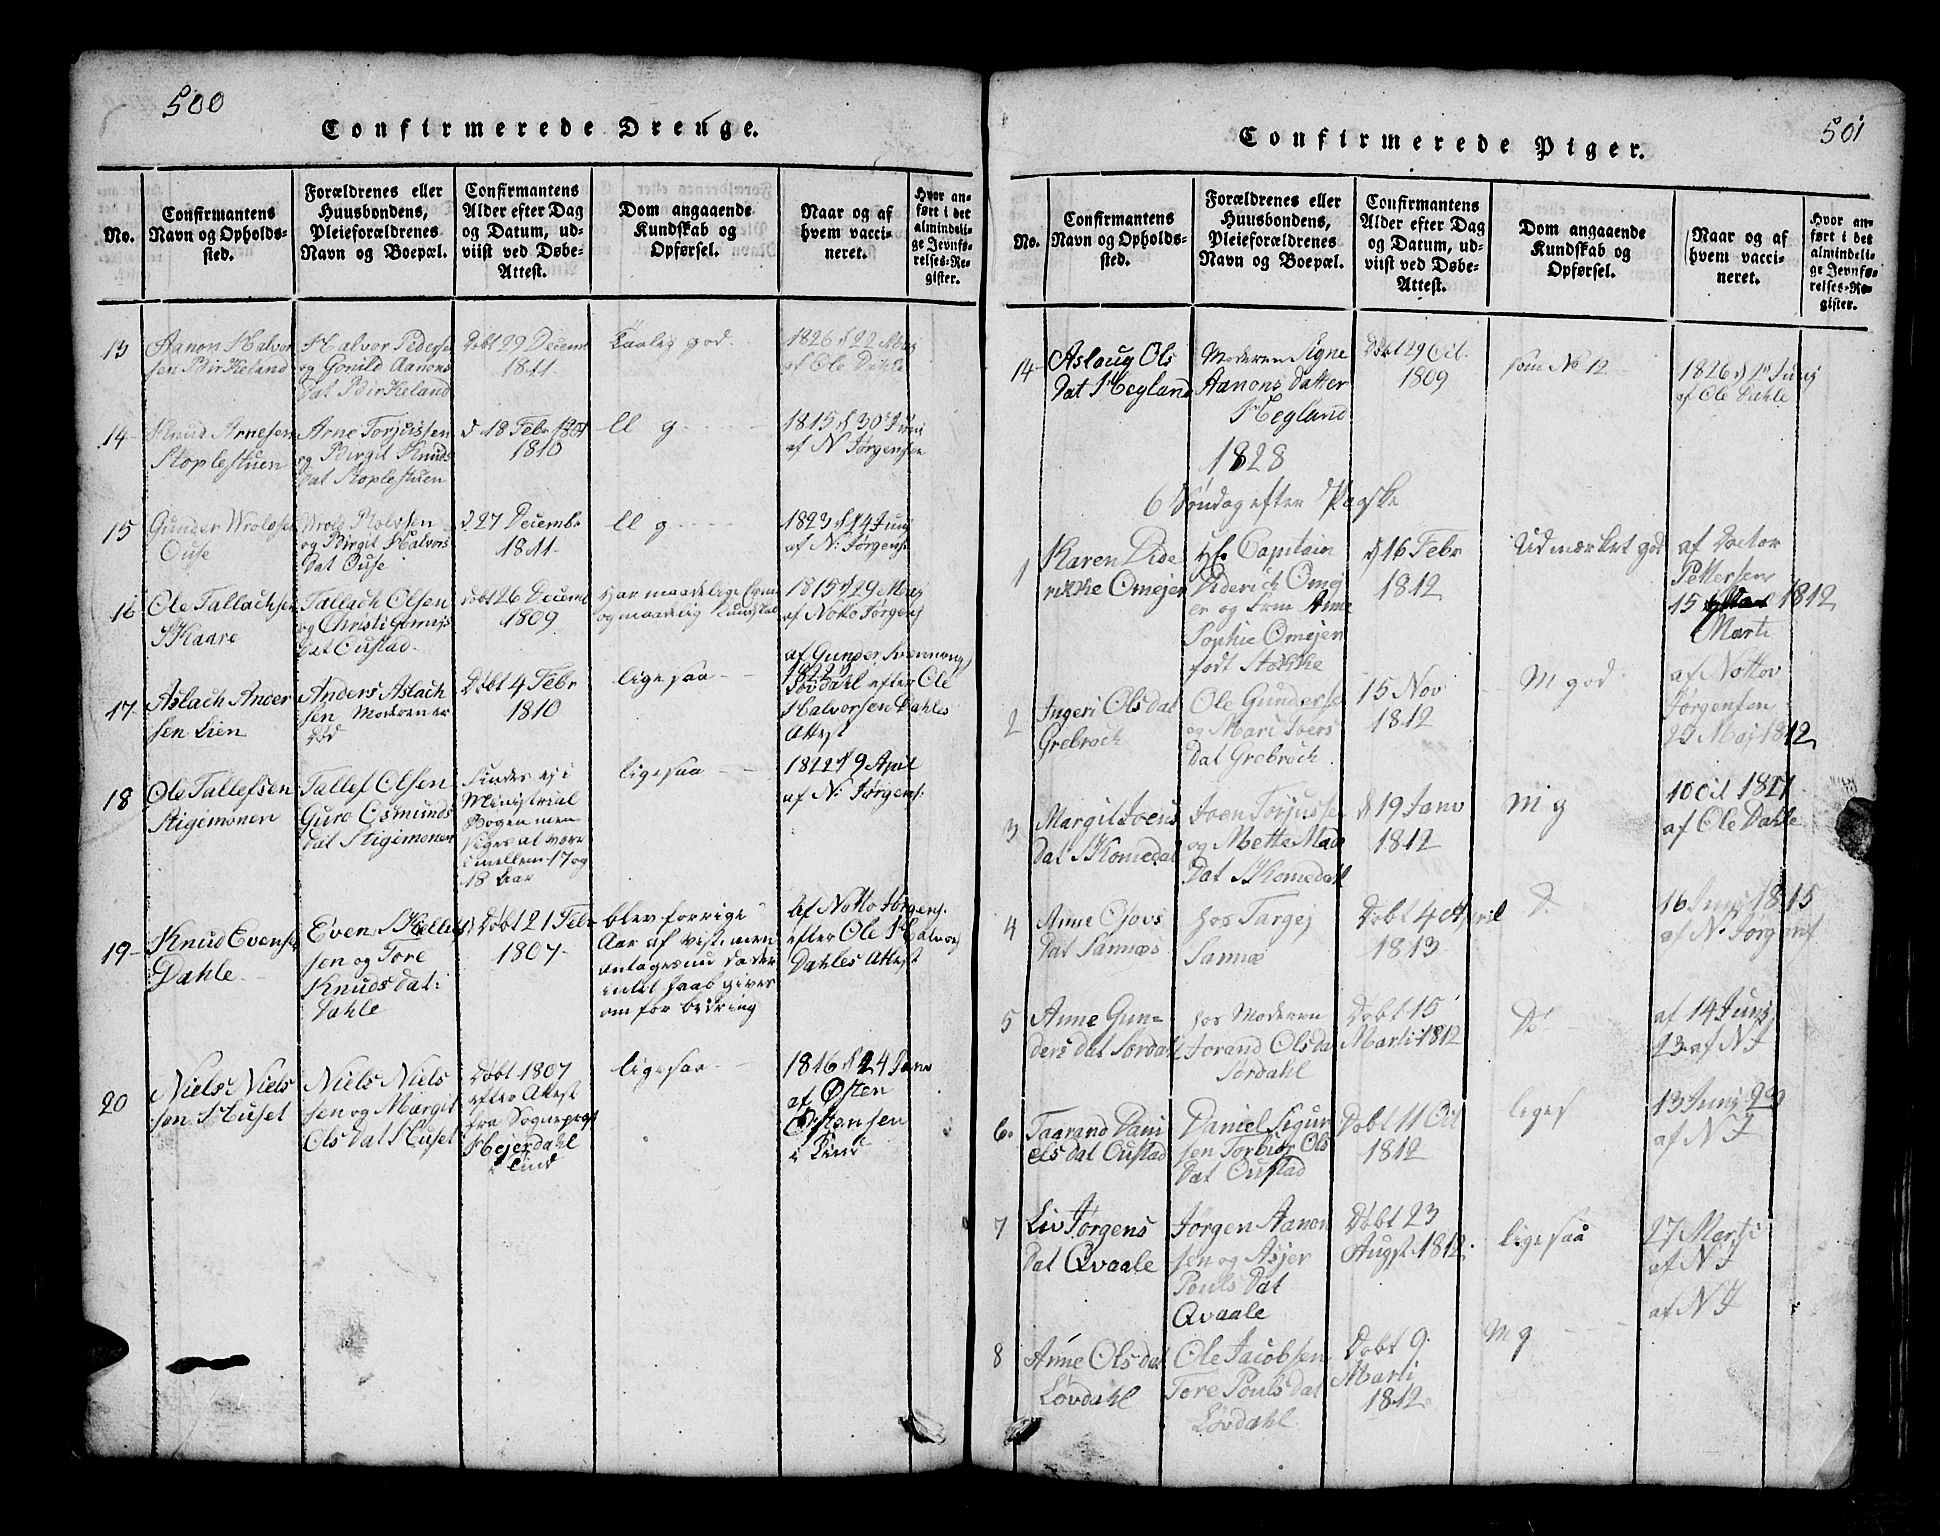 500
Confirmerede Drenge.
No.
Confirmantens
Navn og Opholds-
sted.
Forældrenes eller
Huusbondens,
Pleieforældrenes
Navn og Boepæl.
Confirmantens
Alder efter Dag
og Datum, ud-
viist ved Døbe-
Attest.
Dom angaaende
Kundskab og
Opførsel.
Naar og af
hvem vacci-
neret.
Hvor an-
ført i det
almindeli-
ge Jevnfø-
relses-Re-
gister.
13
Aanon Halvor
sen Birkeland
Halvor Peders
og Gonild Aanons
Dat Birkeland
Døbt 29 Decemb
1811
Taalig god
1826 d 22 May
af Ole Dahle
14
Knud Arnesen
Stoplestuen
Arne Torjussen
og Birgit Knuds
Dat Stoplestuen
d 18 Febr
1810
ll g
1815 d 30 Juni
af N. Jørgensen
15
Gunder Wrolsen
Ouse
Wrole
og Birgit Halvors
Dat Ouse
d 27 Decembr
1811
ll g
1823 d 14 Juny
af N: Jørgens
16
Ole Tallachsen
Skaare
Tallach Olsen
og Christi
Dat Oustad
Døbt 26 Decemb
1809
Har maadelige
og maadelig Kundskab
1815 d 29 May
af Notto Jørgens
17
Aslach Ander
sen Lien
Anders Aslach
sen Moderen er
død
Døbt 4 Febr
1810
ligesaa
af Gunder
Løvdahl efter Ole
Halvorsen Dahles
Attest
18
Ole Tallefsen
Stigemonen
Tallef Olsen
Guro Osmunds
dat Stigemonen
findes ej i
Ministerial
Bogen men
siges at være
imellem 17 og
18 Aar
ligesaa
1822 d 9 April
af N: Jørgens:
19
Knud Evensen
Dahle
Even
sen og Tore
Knuds dat:
Dahle
Døbt 21 Febr
1807
blev forrige
Aar af vist, men
antages nu da der
intet haab gives
om for bedring
Af Notto Jørgens:
efter Ole Halvors
Dahles Attest
20
Niels Niels
sen Huset
Niels Niels
sen og Margit
Ols Dat Huset
Døbt 1807
efter Attest
fra Sognepræst
Hejerdahl
i Lind
ligesaa
1816 d 24 Janv
af Østen
Østensen
i Lind
501
Confirmerede Piger.
No.
Confirmantens
Navn og Opholds-
sted.
Forældrenes eller
Huusbondens,
Pleieforældrenes
Navn og Boepæl.
Confirmantens
Alder efter Dag
og Datum, ud-
viist ved Døbe-
Attest.
Dom angaaende
Kundskab og
Opførsel.
Naar og af
hvem vacci-
neret.
Hvor an-
ført i det
almindeli-
ge Jevnfø-
relses-Re-
gister.
14
Aslaug Ols
Dat Hegland
Moderen Signe
Aanons Datter
Hegland
Døbt 29 Oct.
1809
som No 12
1826 d 1 Juny
af Ole Dahle
1828
6 Søndag efter Paaske
1
Karen Dide
rikke Omejer
Hr. Capitain
Diderich Omej
er og Frue Anne
Sophie Omejer
født Stokke
d 16 Febr
1812
Udmærket god
af Doctor
Pettersen
15 1812
Marti
2
Ingeri Olsdat
Grebroch
Ole Gunderse
og Mari Ivers
Dat Grebroch
15 Nov
1812
M god
af Notto
Jørgensen
29 Maj 1812
3
Margit Joens
Dat Skomedal
Joen Torjusse
og Mette Mads
Dat Skomedahl
d 19 Janv
1812
M g
10 Oct 1821
af Ole Dahle
4
Anne
Dat Sannæs
hos Targej
Sannæ
Døbt 4 April
1813
D.
16 Juny 1815
af N. Jørgens
5
Anne Gun-
ders dat Sørdahl
hos Moderen
Jorand Olsda
Sørdahl
Døbt 15
Marti 1812
D.
af 14 Juny
23 af N J
6.
Taarand Dani
els dat Oustad
Daniel Sigur
sen Torbiør Ols
Dat Oustad
Døbt 11 Oct
1812
liges
13 Juny
af N J
7
Liv Jørgens
Dat Qvaale
Jørgen Aanon
sen og Asjer
Pouls Dat
Qvaale
Døbt 23
Augst 1812
ligesaa
27 Marti
af N J
8
Anne Ols dat
Løvdahl
Ole Jacobsen
Tore Pouls dat
Løvdahl
Døbt 9
Marti
1812
M g
af N J